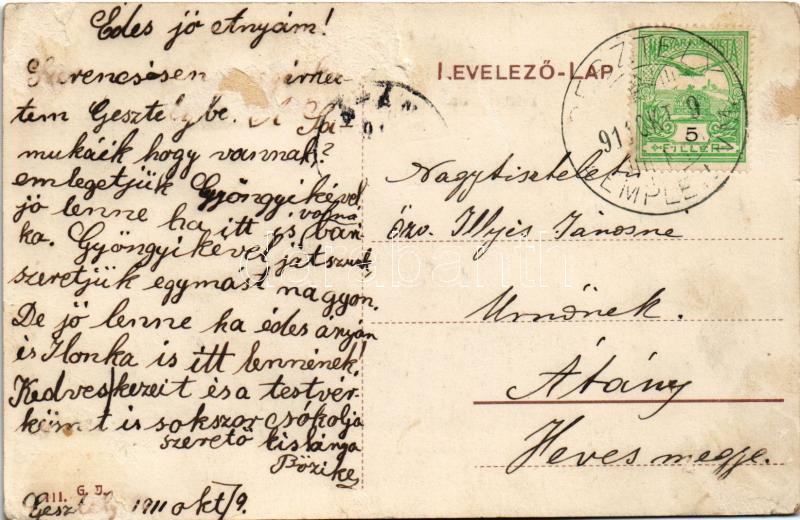 Edes jó Anyám!
Szerencsésen érkez-
tem Gesztelybe. A Sa-
mukáék hogy vannak?
emlegetjük Gyöngyikével
jó lenne ha itt is vólná
ka. Gyöngyikével játszunk,
szeretjük egymást nagyon.
De jó lenne ha édes anyám
és Ilonka is itt lennének!
Kedves kezeit és a testvér-
keimet is sokszor csókolja
szerető kis lánya
Pözike
III. G. J.
Gesztely 1911 okt/9.
LEVELEZŐ-LAP
MAGYAR KIR. POSTA
5
FILLÉR
911 OKT 9
Nagytiszteletü
Özv. Illyés Jánosné
Urnőnek.
Átány
Heves megye.
darabanth